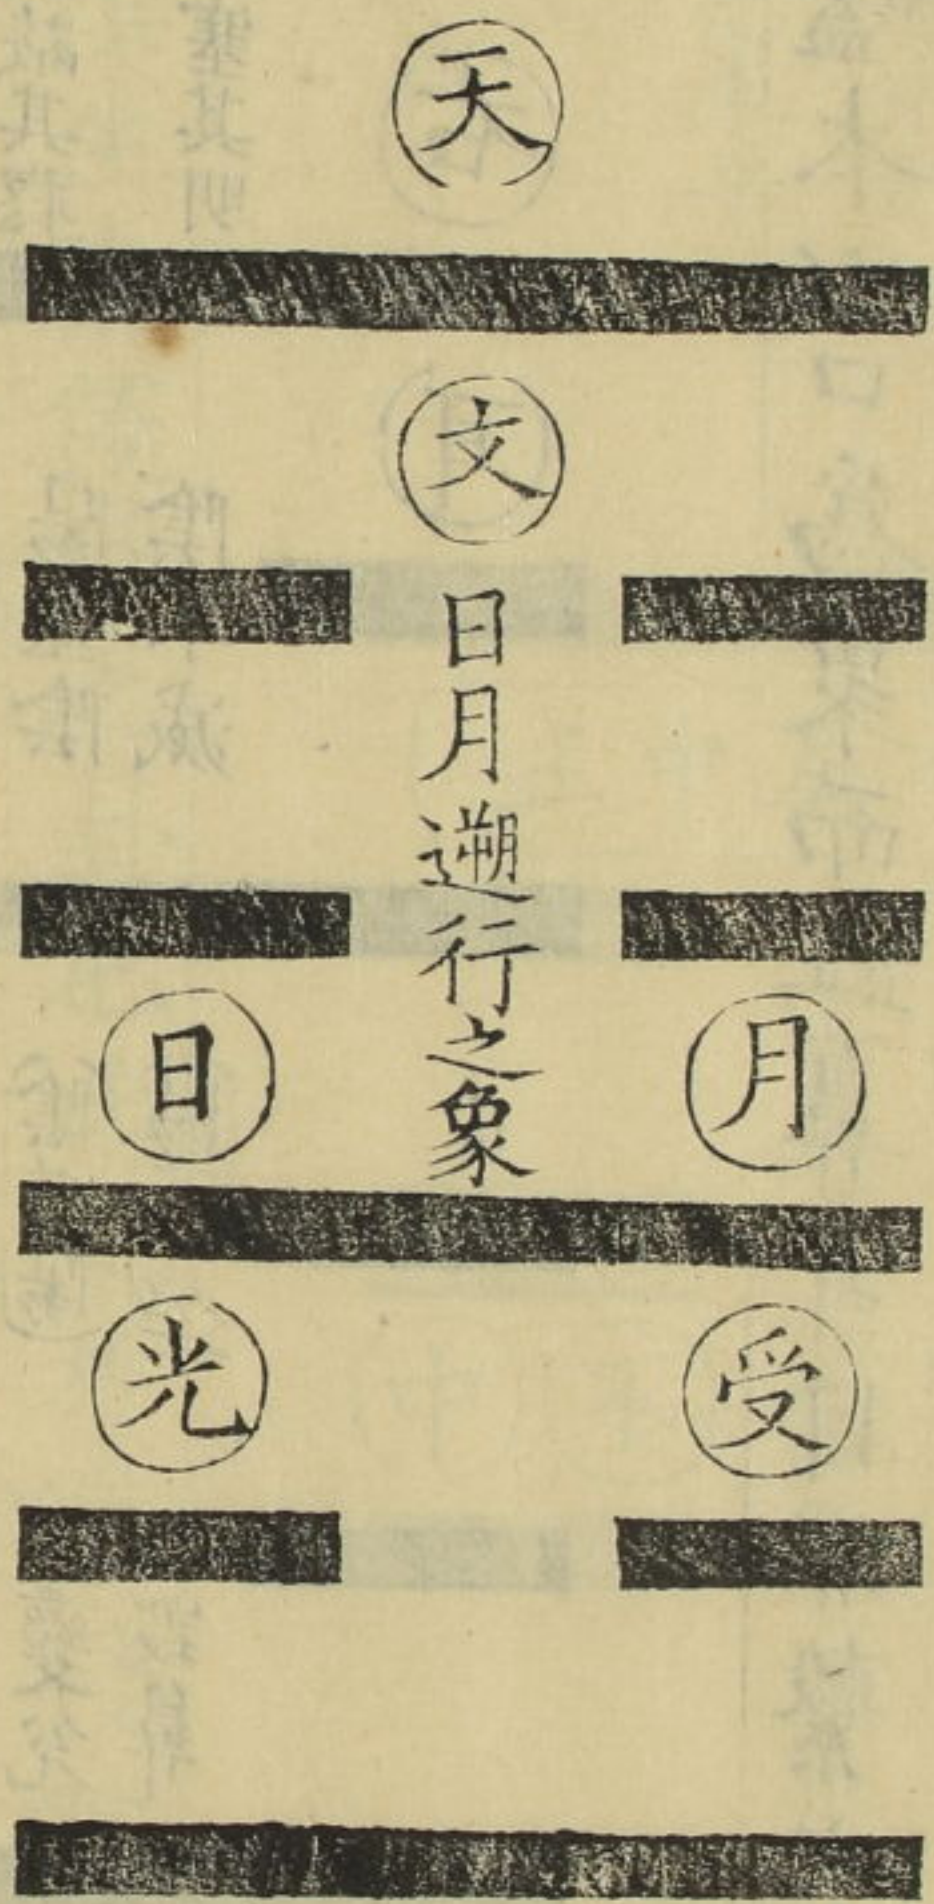 天
文
日月遡行之象
月
日
受
光